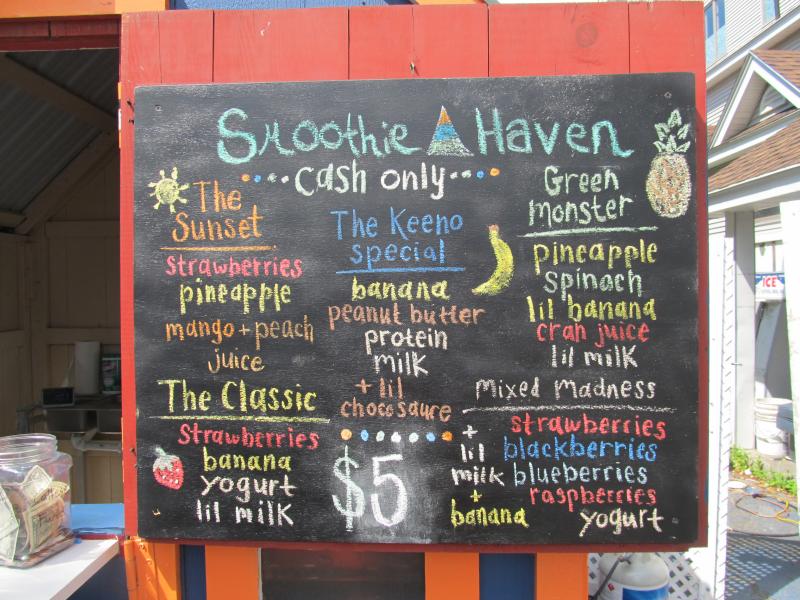 Smoothie Haven
cash only
The
Sunset
strawberries
pineapple
mango + peach
juice
The Classic
strawberries
banana
yogurt
lil milk
The Keeno
special
banana
peanut butter
protein
milk
+ lil
choco sauce
$5
Green
monster
pineapple
spinach
lil banana
cran juice
lil milk
mixed madness
strawberries
blackberries
blueberries
raspberries
yogurt
+
lil
milk
+
banana
ICE